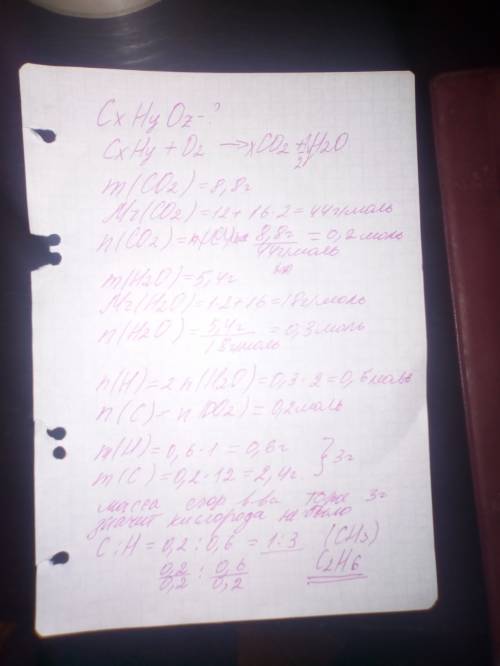 CxHyOz-?
CxHy + O2 → xCO2 + y/2 H2O
m(CO2) = 8,8г
Mr(CO2) = 12 + 16·2 = 44г/моль
n(CO2) = 8,8г/44г/моль = 0,2моль
m(H2O) = 5,4г
Mr(H2O) = 1·2 + 16 = 18г/моль
n(H2O) = 5,4г/18г/моль = 0,3моль
n(H) = 2n(H2O) = 0,3·2 = 0,6моль
n(C) = n(CO2) = 0,2моль
m(H) = 0,6·1 = 0,6г
m(C) = 0,2·12 = 2,4г } 3г
масса сгор в-ва тоже 3г
значит кислорода не было
C:H = 0,2:0,6 = 1:3 (CH3)
0,2/0,2 : 0,6/0,2 C2H6